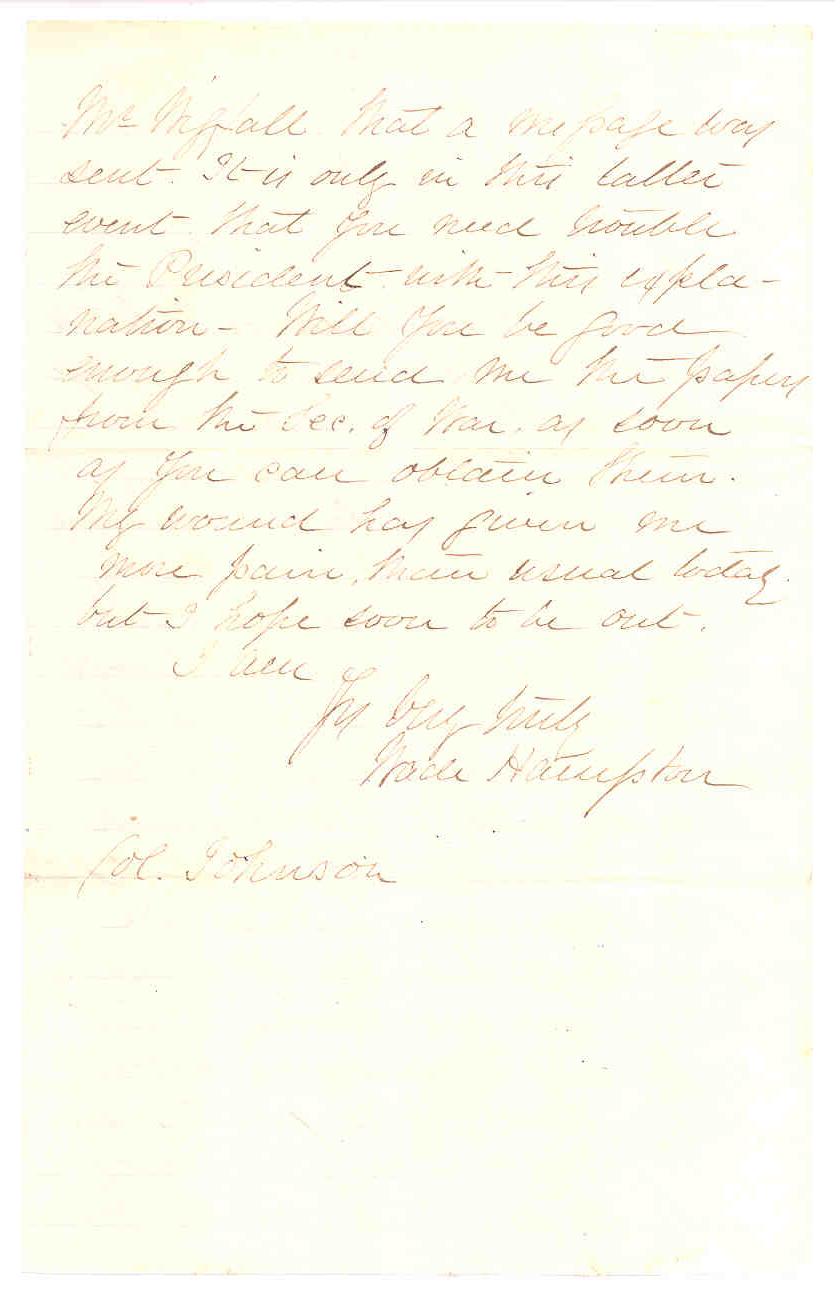 Mr Wigfall that a message was
sent. It is only in this latter
event that you need trouble
the President with this expla-
nation - Will you be good
enough to send me the papers
from the Sec. of War. as soon
as you can obtain them.
My wound has given me
more pain, than usual today.
but I hope soon to be out.
I am
Yrs very truly
Wade Hampton
Col. Johnson